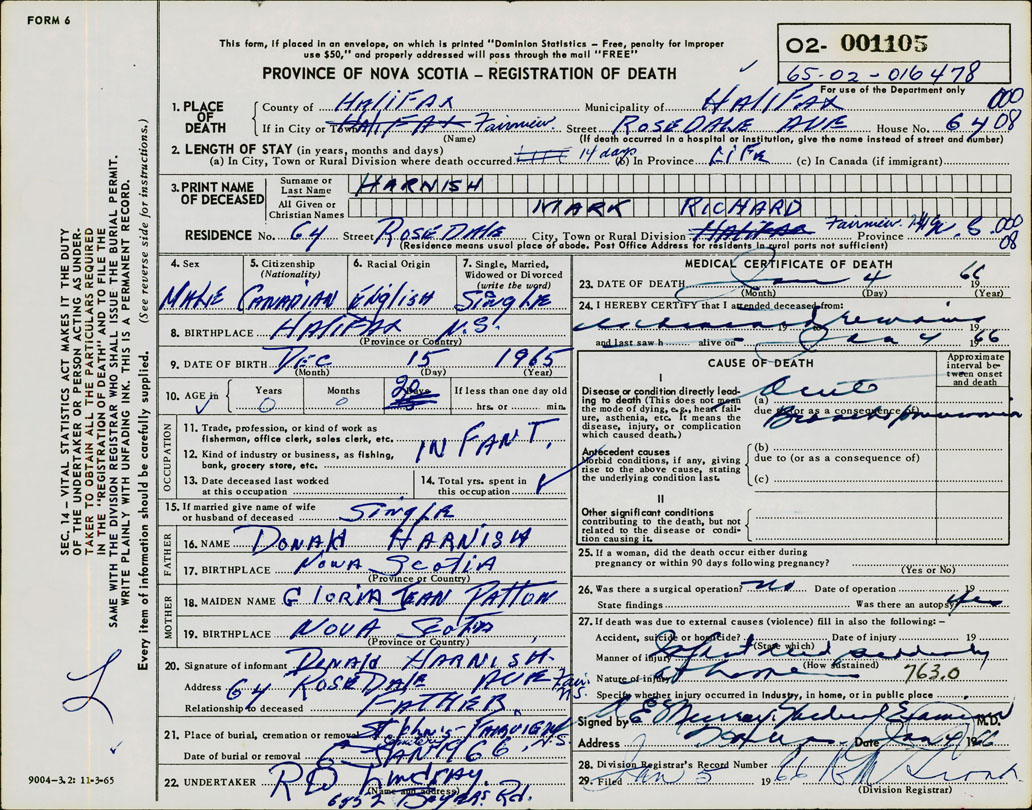 FORM 6
This form, if placed in an envelope, on which is printed "Dominion Statistics – Free, penalty for improper
use $50," and properly addressed will pass through the mail "FREE"
PROVINCE OF NOVA SCOTIA – REGISTRATION OF DEATH
02- 001105
65-02-016478
For use of the Department only
1. PLACE OF DEATH
County of HALIFAX Municipality of HALIFAX 000
If in City or Town HALIFAX Fairview Street ROSEDALE AVE House No. 64 08
(Name) (If death occurred in a hospital or institution, give the name instead of street and number)
2. LENGTH OF STAY (in years, months and days)
(a) In City, Town or Rural Division where death occurred 14 days (b) In Province LIFE (c) In Canada (if immigrant)
3. PRINT NAME OF DECEASED
Surname or Last Name HARNISH
All Given or Christian Names MARK RICHARD
RESIDENCE No. 64 Street ROSEDALE City, Town or Rural Division HALIFAX Fairview Hfx Province N.S. 000
08
(Residence means usual place of abode. Post Office Address for residents in rural parts not sufficient)
4. Sex 5. Citizenship (Nationality) 6. Racial Origin 7. Single, Married, Widowed or Divorced (write the word)
MALE CANADIAN ENGLISH SINGLE
8. BIRTHPLACE HALIFAX N.S.
(Province or Country)
9. DATE OF BIRTH DEC 15 1965
(Month) (Day) (Year)
10. AGE in Years Months Days If less than one day old
0 0 20 hrs. or min.
OCCUPATION
11. Trade, profession, or kind of work as
fisherman, office clerk, sales clerk, etc.
INFANT.
12. Kind of industry or business, as fishing,
bank, grocery store, etc.
13. Date deceased last worked
at this occupation
14. Total yrs. spent in
this occupation
15. If married give name of wife
or husband of deceased SINGLE
FATHER
16. NAME DONALD HARNISH
17. BIRTHPLACE NOVA SCOTIA
(Province or Country)
MOTHER
18. MAIDEN NAME GLORIA JEAN PATTON
19. BIRTHPLACE NOVA SCOTIA
(Province or Country)
20. Signature of informant DONALD HARNISH
Address 64 ROSEDALE AVE Fair. N.S.
Relationship to deceased FATHER.
21. Place of burial, cremation or removal St John's FAIRVIEW N.S
Cemetery
Date of burial or removal 5 JAN 1966
22. UNDERTAKER R D Lindsay
(Name and address)
6552 Bayers Rd.
MEDICAL CERTIFICATE OF DEATH
23. DATE OF DEATH Jan 4 1966
(Month) (Day) (Year)
24. I HEREBY CERTIFY that I attended deceased from:
remains 19
and last saw h alive on Jan 4 1966
CAUSE OF DEATH
Approximate interval between onset and death
I
Disease or condition directly leading to death (This does not mean
the mode of dying, e.g., heart failure, asthenia, etc. It means the
disease, injury, or complication
which caused death.)
(a) Acute
due to (or as a consequence of)
Bronchopneumonia
Antecedent causes
Morbid conditions, if any, giving
rise to the above cause, stating
the underlying condition last.
(b)
due to (or as a consequence of)
(c)
II
Other significant conditions
contributing to the death, but not
related to the disease or condition causing it.
25. If a woman, did the death occur either during
pregnancy or within 90 days following pregnancy?
(Yes or No)
26. Was there a surgical operation? no Date of operation 19
State findings Was there an autopsy yes
27. If death was due to external causes (violence) fill in also the following: –
Accident, suicide or homicide? Date of injury 19
(State which)
Manner of injury died suddenly
(How sustained)
Nature of injury at home 763.0
Specify whether injury occurred in Industry, in home, or in public place
Signed by E Murray Medical Examiner M.D.
Address Halifax Date Jan 4 1966
28. Division Registrar's Record Number
29. Filed Jan 5 1966
(Division Registrar)
SEC. 14 – VITAL STATISTICS ACT MAKES IT THE DUTY
OF THE UNDERTAKER OR PERSON ACTING AS UNDERTAKER TO OBTAIN ALL THE PARTICULARS REQUIRED
IN THE "REGISTRATION OF DEATH" AND TO FILE THE
SAME WITH THE DIVISION REGISTRAR WHO SHALL ISSUE THE BURIAL PERMIT.
WRITE PLAINLY WITH UNFADING INK. THIS IS A PERMANENT RECORD.
Every item of information should be carefully supplied. (See reverse side for instructions.)
9004-3.2: 11-3-65